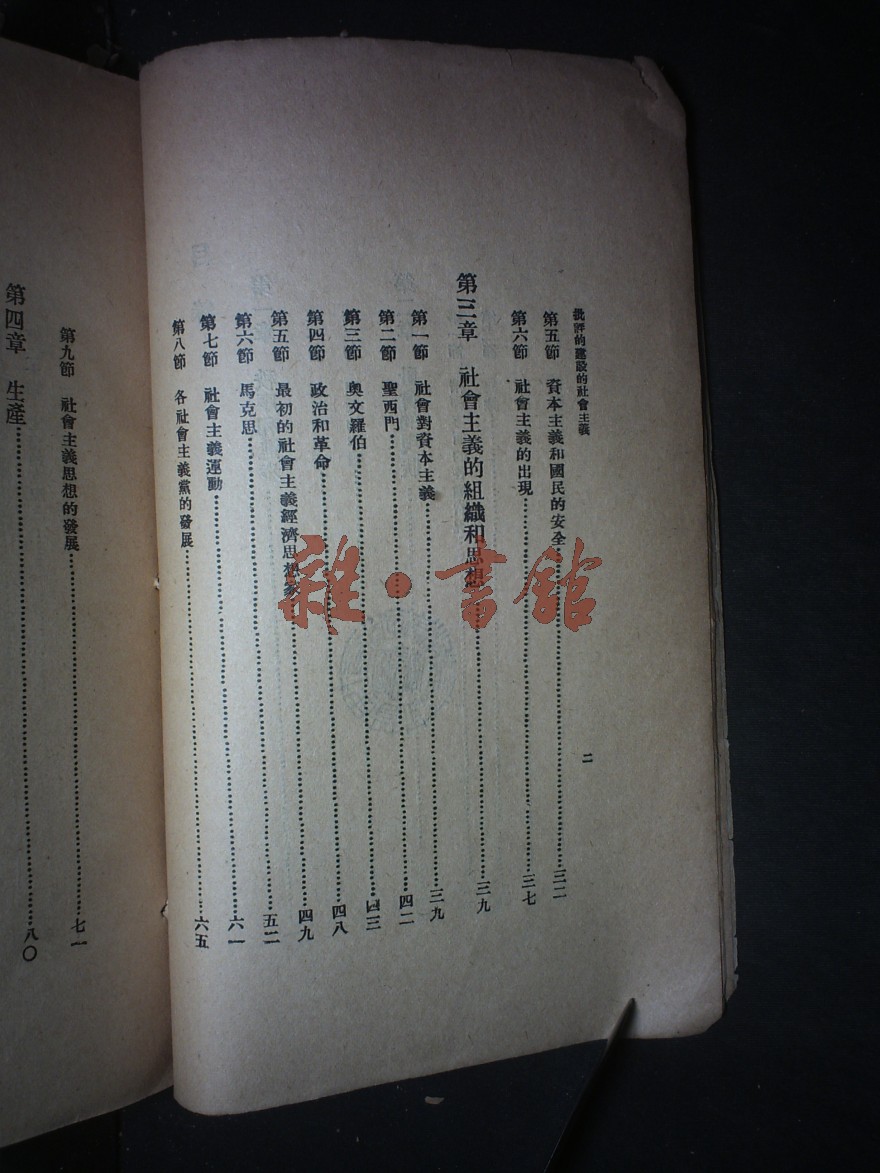 批評的建設的社會主義
二
第五節 資本主義和國民的安全……三二
第六節 社會主義的出現……三七
第三章 社會主義的組織和思想……三九
第一節 社會對資本主義……三九
第二節 聖西門……四二
第三節 奥文羅伯……四三
第四節 政治和革命……四八
第五節 最初的社會主義經濟思想家……四九
第六節 馬克思……五二
第七節 社會主義運動……六一
第八節 各社會主義黨的發展……六五
第九節 社會主義思想的發展……七一
第四章 生產……八〇
雜·書館